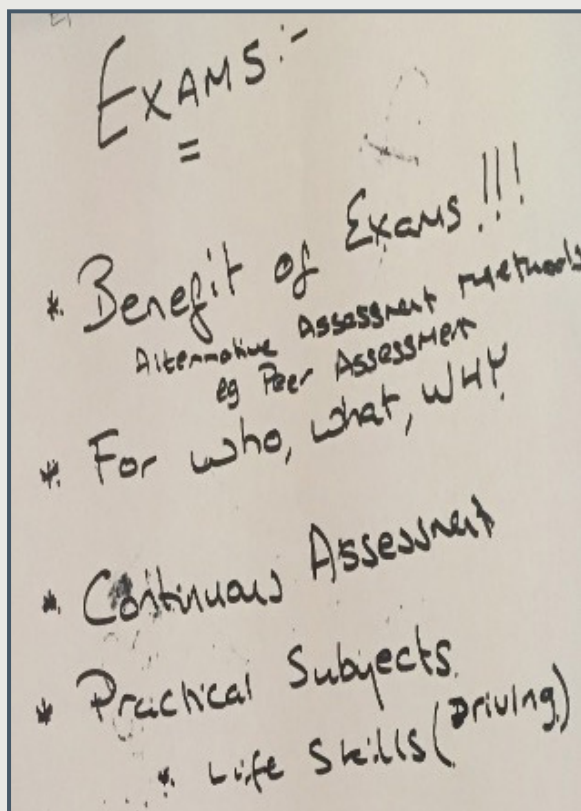 EXAMS:-
* Benefit of Exams!!!
Alternative Assessment Methods
eg Peer Assessment
* For who, what, WHY
* Continuous Assessment
* Practical Subjects
* Life Skills (Driving)